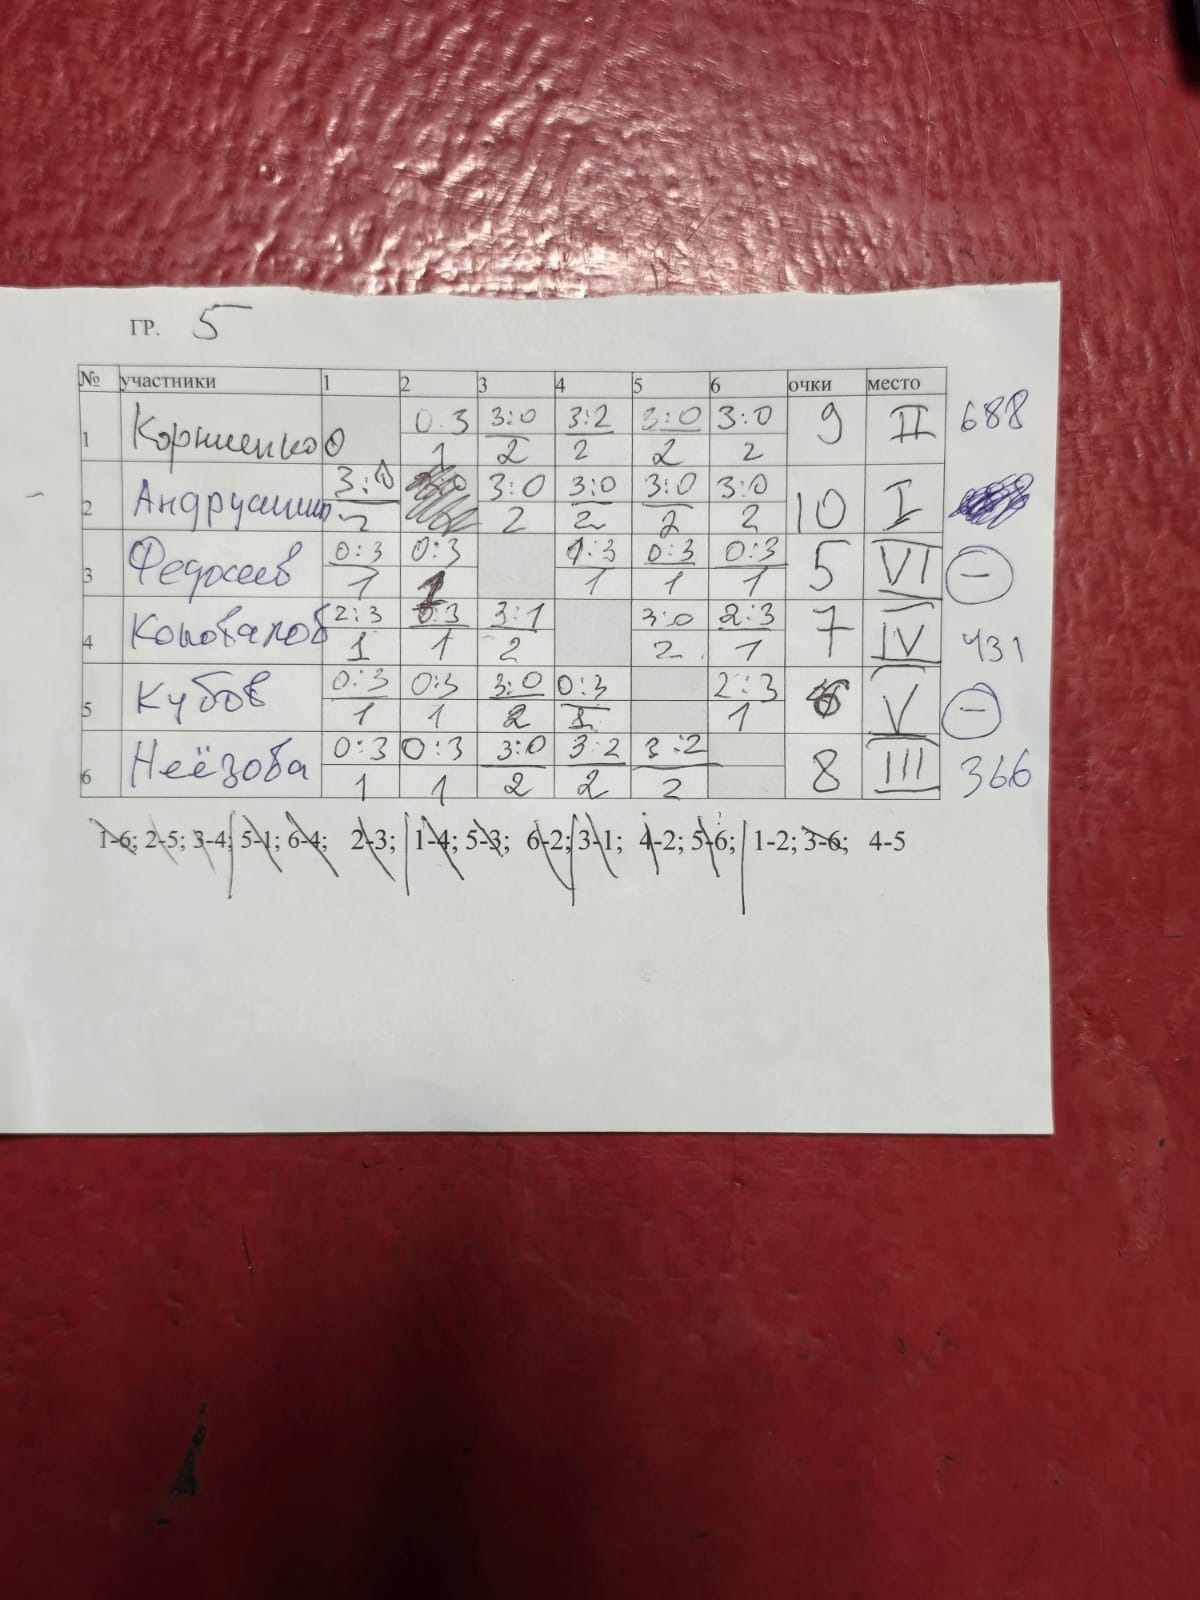 ГР. 5
№ участники 1 2 3 4 5 6 очки место
1 Корниенко 0:3 3:0 3:2 3:0 3:0 9 II 688
1 2 2 2 2
2 3:0 3:0 3:0 3:0 3:0 10 I
2 2 2 2 2
3 Федосеев 0:3 0:3 1:3 0:3 0:3 5 VI —
1 1 1 1 1
4 Коновалов 2:3 0:3 3:1 3:0 2:3 7 IV 431
1 1 2 2 1
5 Кубов 0:3 0:3 3:0 0:3 2:3 6 V —
1 1 2 1 1
6 0:3 0:3 3:0 3:2 3:2 8 III 366
1 1 2 2 2
1-6; 2-5; 3-4; 5-1; 6-4; 2-3; 1-4; 5-3; 6-2; 3-1; 4-2; 5-6; 1-2; 3-6; 4-5